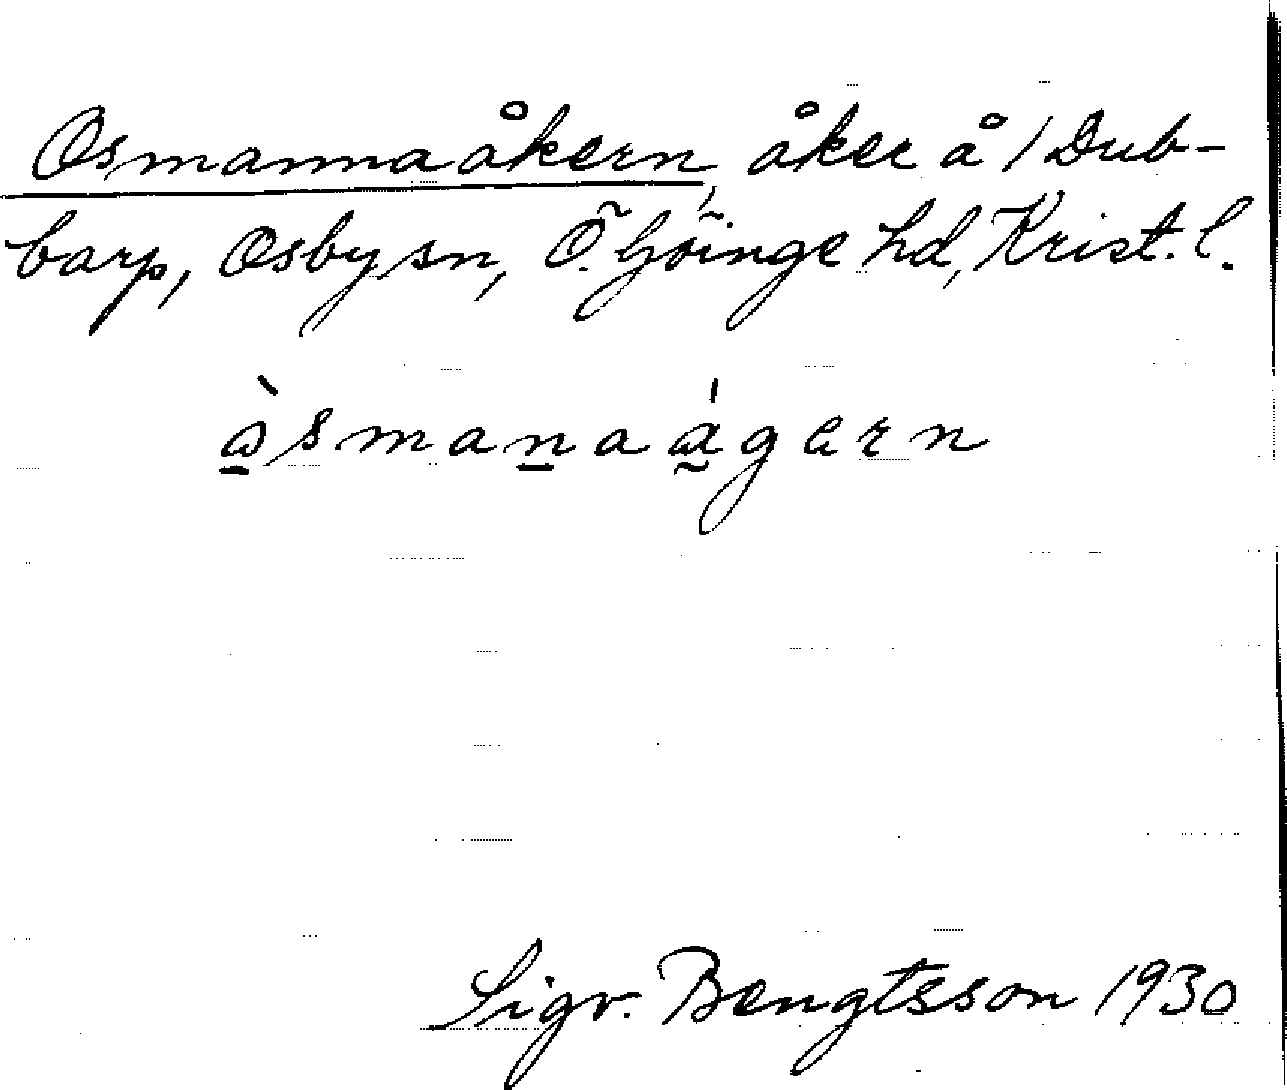 Osmannaåkern, åker å 1 Dub-
barp, Osby sn, Ö. Göinge hd, Krist. l.
òsmanaágern
Sigv. Bengtsson 1930